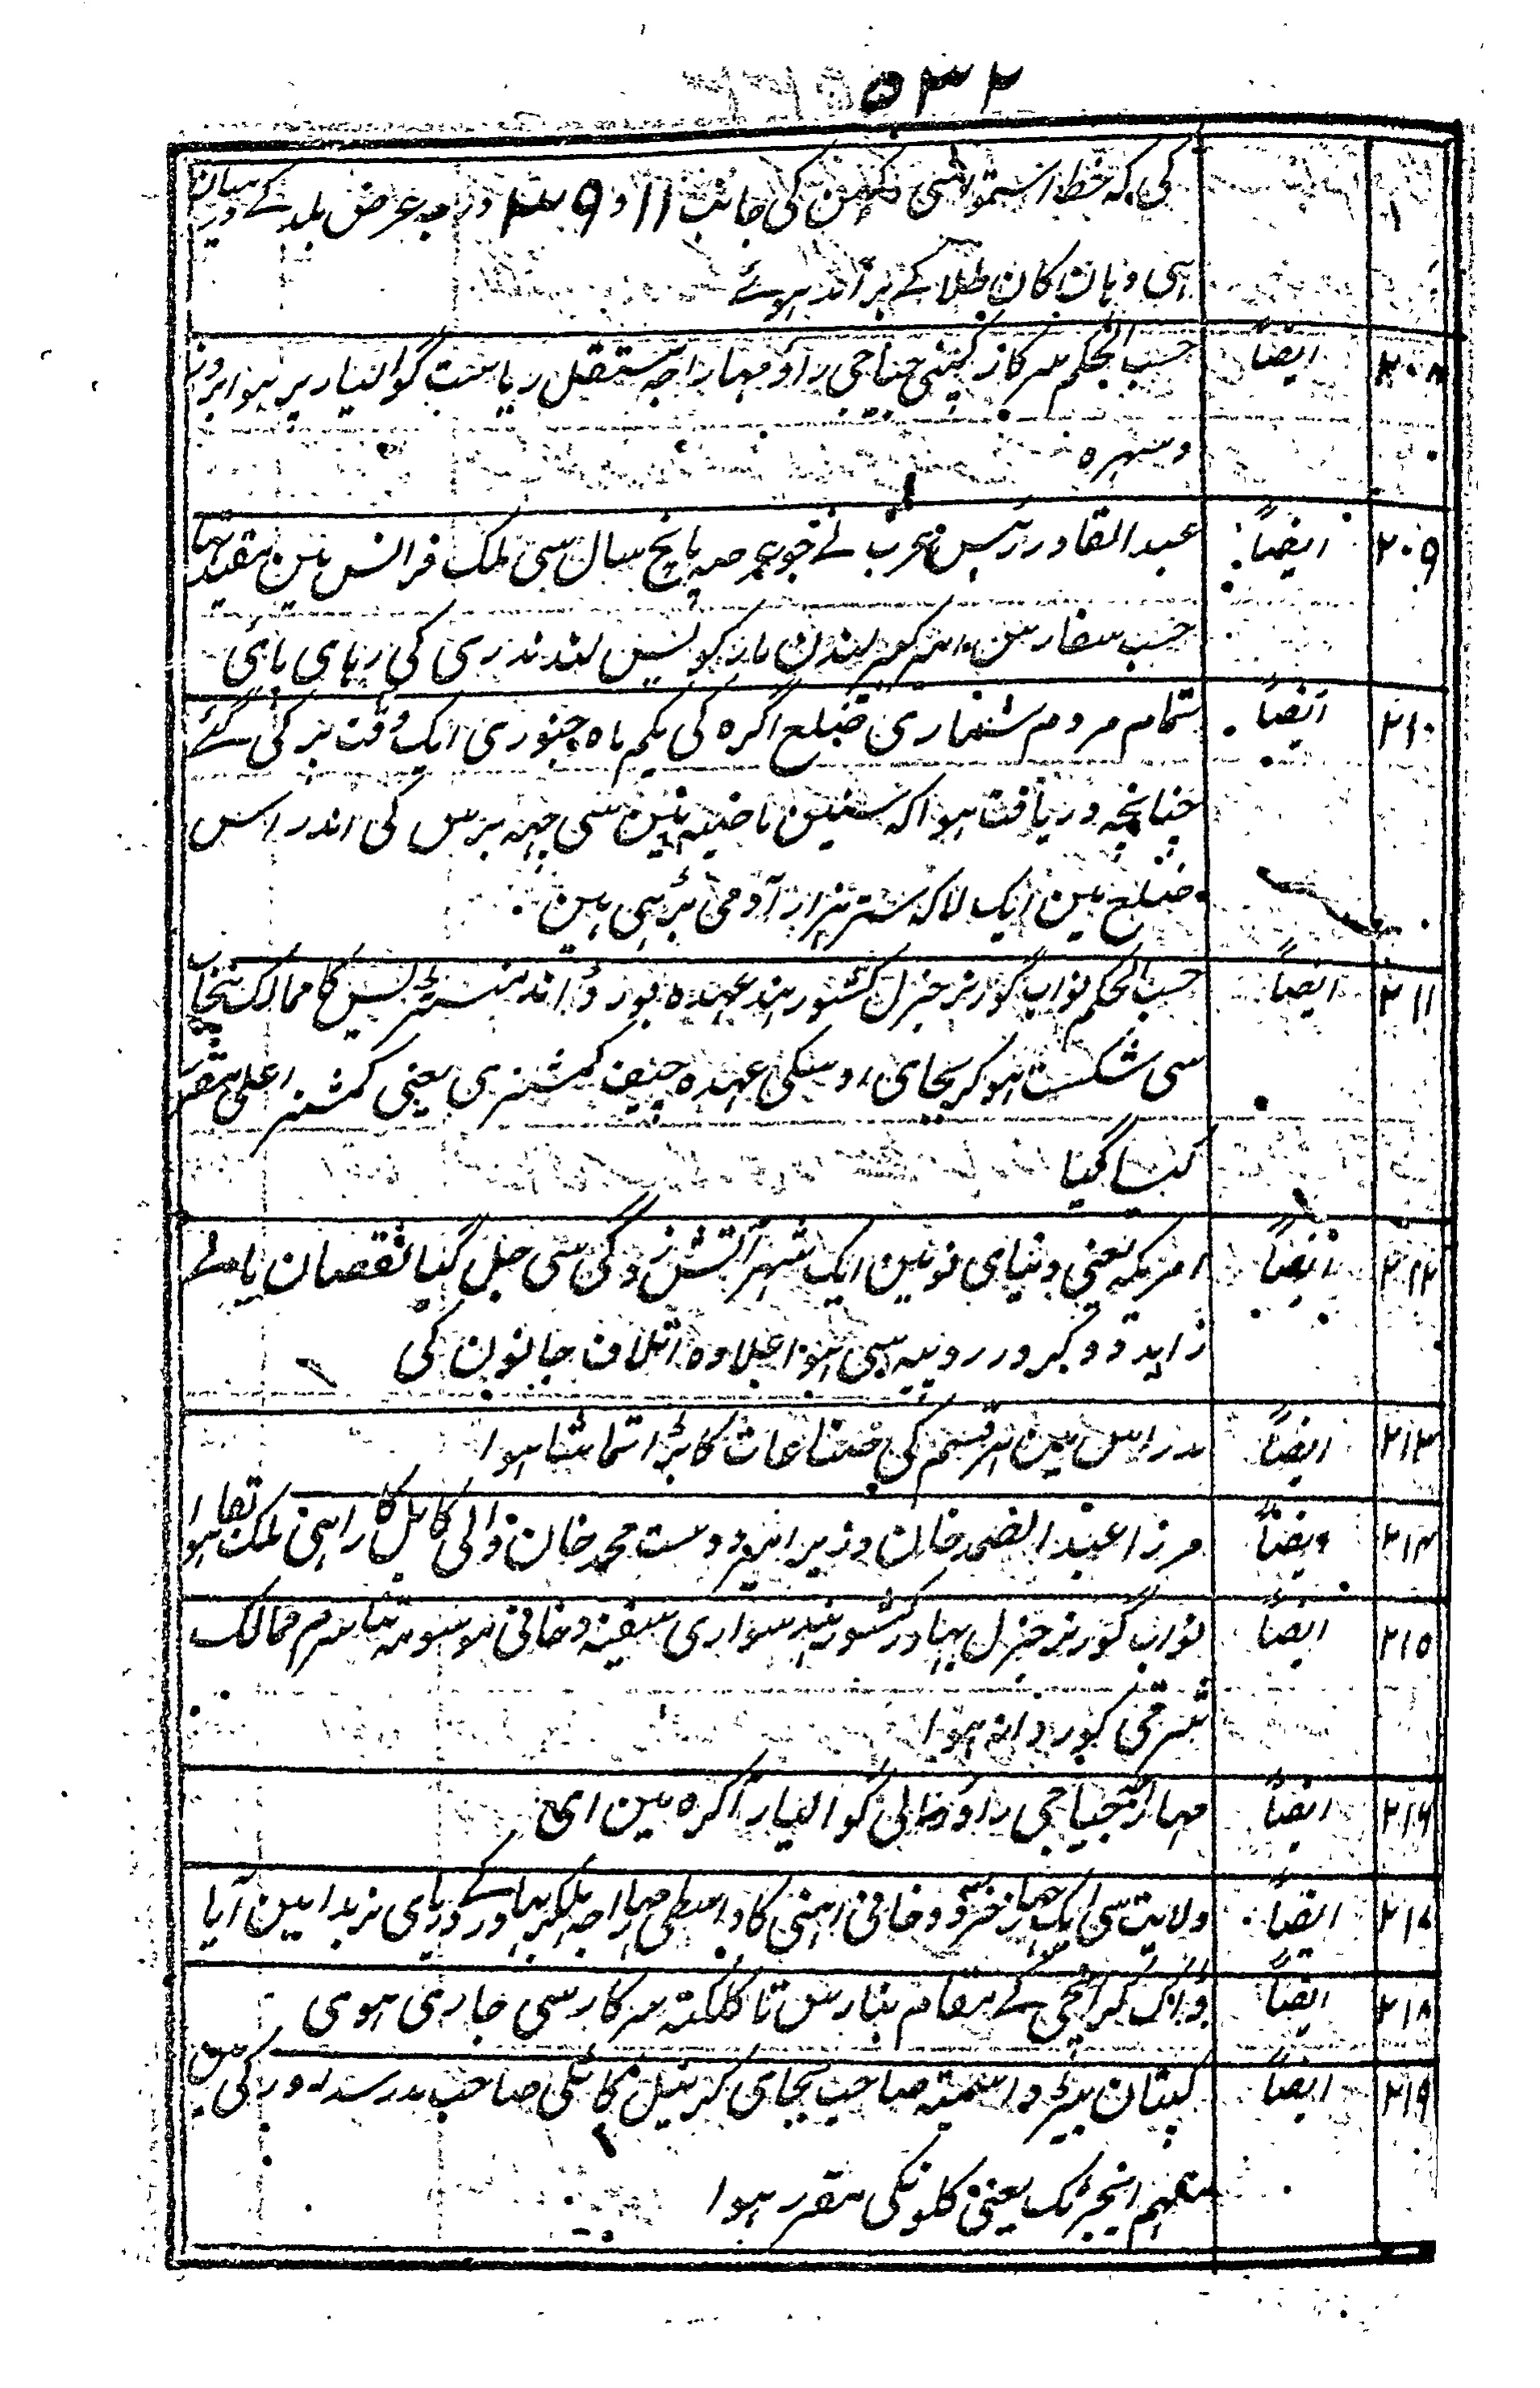 ۵۳۲
کی کہ خط استوا سی دکھن کی جانب ۱۱ و ۳۹ درجہ عرض بلد کے درمیان
ہی وہان کان طلا کے برآمد ہوئے
۲۰۸ ایضاً حسب الحکم سرکار کمپنی جیاجی راؤ مہاراجہ مستقل ریاست گوالیار پر ہوا بروز
دسہرہ
۲۰۹ ایضاً عبد القادر رئیس عرب نے جو عرصہ پانچ سال سی ملک فرانس مین مقید تہا
حسب سفارش امیر کبیر لندن مارکوئیس لندندری کی رہای پای
۲۱۰ ایضاً تمام مردم شماری ضلع اگرہ کی یکم ماہ جنوری ایک وقت پر کی گئے
چنانچہ دریافت ہوا کہ سنین ماضیہ مین سی چہہ برس کی اندر اس
ضلع مین ایک لاکہ ستر ہزار آدمی بڑہی ہین
۲۱۱ ایضاً حسب الحکم نواب گورنر جنرل کشور ہند عہدہ بورڈ اند منسٹریشن کا ممالک پنجاب
سی شکست ہو کر بجای اوسکی عہدہ چیف کمشنری یعنی کمشنر اعلی مقرر
کیا گیا
۲۱۲ ایضاً امریکہ یعنی دنیای نو مین ایک شہر آتش زدگی سی جل گیا نقصان مالے
زاید دو کرور روپیہ سی ہوا علاوہ اتلاف جانون کی
۲۱۳ ایضاً مدراس مین ہر قسم کی صناعات کا بڑا تماشا ہوا
۲۱۴ ایضاً مرزا عبد الصمد خان وزیر امیر دوست محمد خان والی کابل کا راہی ملک بقا ہوا
۲۱۵ ایضاً نواب گورنر جنرل بہادر کشور ہند سواری سفینہ دخانی موسومہ ممالک
شرقی کو روانہ ہوا
۲۱۶ ایضاً مہاراجہ جیاجی راؤ والی گوالیار اگرہ مین ای
۲۱۷ ایضاً ولایت سی ایک جہاز دخانی اہنی کا واسطی مہاراجہ ہلکر بہادر کے دریای نربدا مین آیا
۲۱۸ ایضاً ڈاک گرانچی کے مقام بنارس تا کلکتہ سرکار سی جاری ہوی
۲۱۹ ایضاً کپتان بیرڈ اسمتہ صاحب بجای کرنیل کاٹلی صاحب مدرسہ رورکی مین
مہتمم انجرنک یعنی کلونکی مقرر ہوا